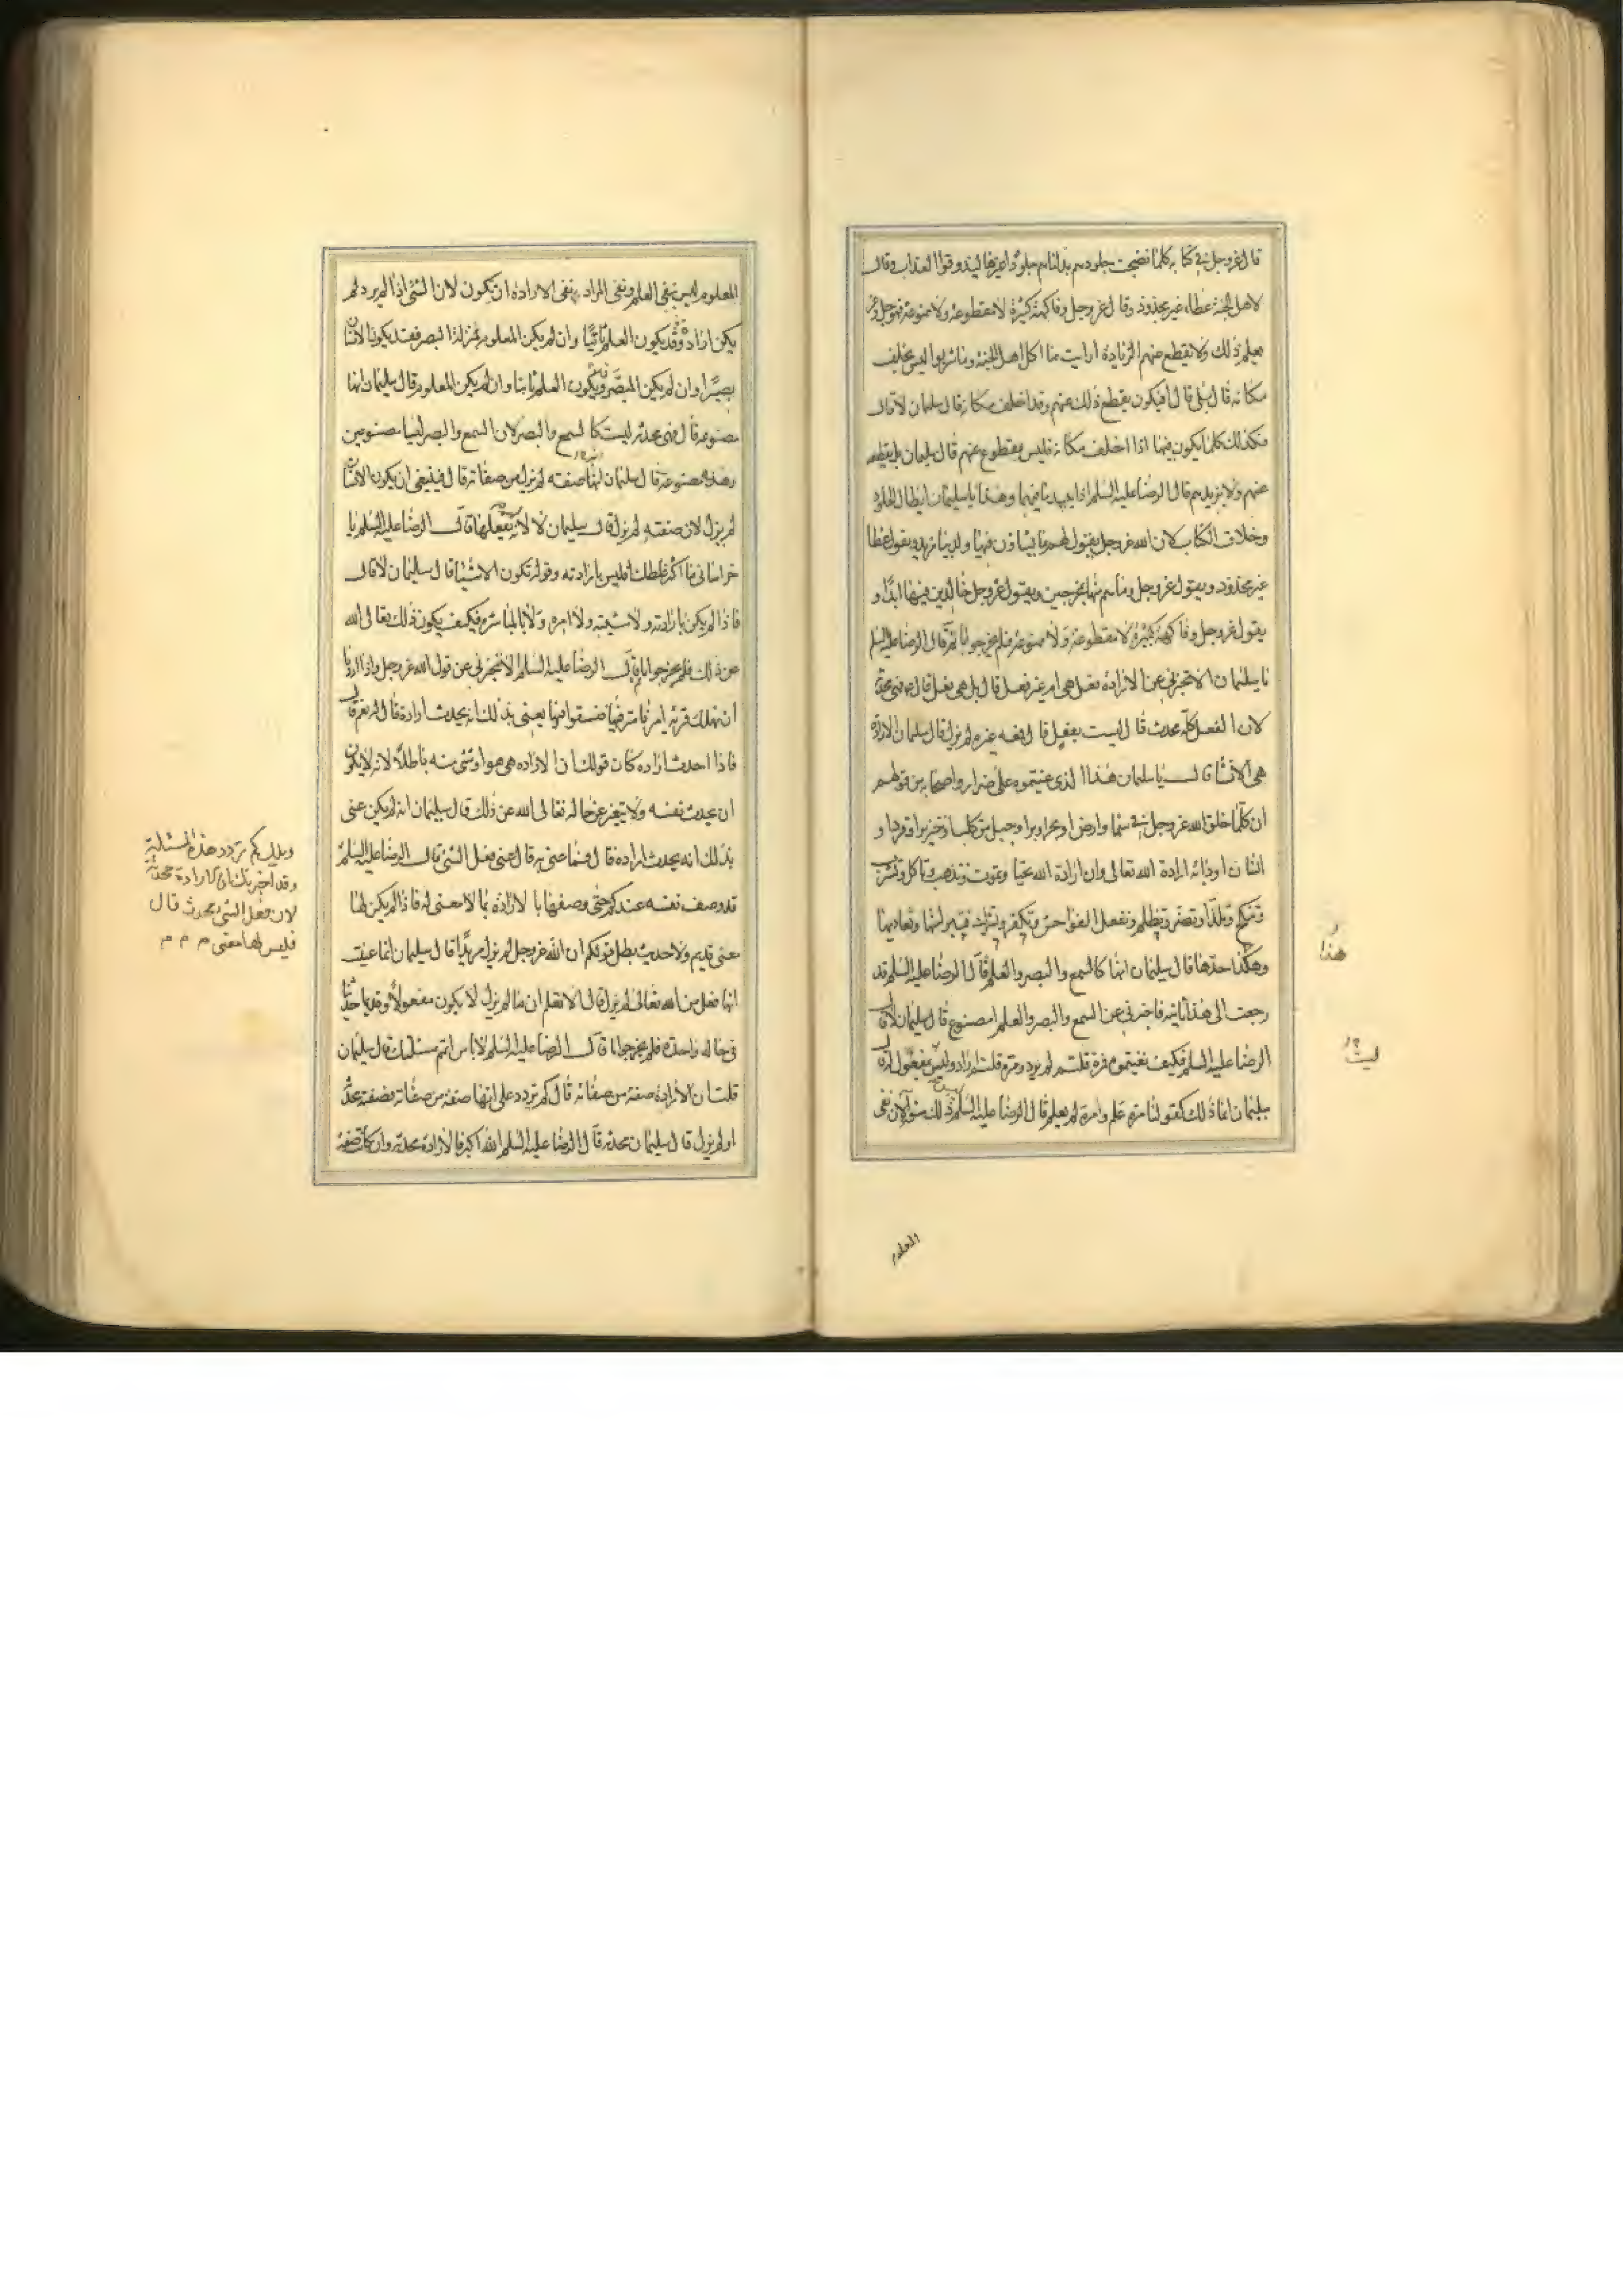 قال عز وجل في كتابه كلما نضجت جلودهم بدلناهم جلودا غيرها ليذوقوا العذاب وقال
لاهل الجنة عطاء غير مجذوذ وقال عز وجل وفاكهة كثيرة لا مقطوعة ولا ممنوعة فهو جل وعز
يعلم ذلك ولا يقطع عنهم الزيادة ارايت ما اكل اهل الجنة وما شربوا ليس يخلف
مكانه قال بلى قال افيكون يقطع ذلك عنهم وقد اخلف مكانه قال سليمان لا قال
فكذلك كلما يكون فيها اذا اخلف مكانه فليس بمقطوع عنهم قال سليمان بل يقطعه
عنهم ولا يزيدهم قال الرضا عليه السلم اذا يبيد ما فيها وهذا يا سليمان ابطال الخلود
وخلاف الكتاب لان الله عز وجل يقول لهم ما يشاؤن فيها ولدينا مزيد ويقول عطا
غير مجذوذ ويقول عز وجل وما هم منها بمخرجين ويقول عز وجل خالدين فيها ابدا و
يقول عز وجل وفاكهة كثيرة لا مقطوعة ولا ممنوعة فلم يحر جوابا ثم قال الرضا عليه السلم
يا سليمان الا تخبرني عن الارادة فعل هي ام غير فعل قال بل هي فعل قال فهي محدثة
لان الفعل كله محدث قال ليست بفعل قال فمعه غيره لم يزل قال سليمان الارادة
هي الانشا قال يا سليمان هذا الذي عبتموه على ضرار واصحابه من قولهم
ان كلما خلق الله عز وجل في سما وارض او بحر او بر او جبل من كلب او خنزير او قرد او
انسان او دابة ارادة الله تعالى وان ارادة الله تحيا وتموت وتذهب وتاكل وتشرب
وتنكح وتلذ وتظلم وتفعل الفواحش وتكفر وتشرك فتبرا منها وتعاديها
وهكذا حدها قال سليمان انها كالسمع والبصر والعلم قال الرضا عليه السلم قد
رجعت الى هذا ثانية فاخبرني عن السمع والبصر والعلم امصنوع قال سليمان لا قال
الرضا عليه السلم فكيف نفيتموه فمرة قلتم لم يرد ومرة قلتم اراد وليس بمفعول له قال
سليمان انما ذلك كقولنا مرة علم ومرة لم يعلم قال الرضا عليه السلم ليس ذلك سوآ لان نفي
هذا
المعلوم
المعلوم ليس بنفي العلم ونفي المراد نفي الارادة ان تكون لان الشئ اذا لم يرد لم
يكن ارادة وقد يكون العلم ثابتا وان لم يكن المعلوم بمنزلة البصر فقد يكون الانسان
بصيرا وان لم يكن المبصر ويكون العلم ثابتا وان لم يكن المعلوم قال سليمان انها
مصنوعة قال فهي محدثة ليست كالسمع والبصر لان السمع والبصر ليسا مصنوعين
وهذه مصنوعة قال سليمان انها صفة من صفاته لم تزل قال فينبغي ان يكون الانسان
لم يزل لان صفته لم تزل قال سليمان لا لانه لم يفعلها قال الرضا عليه السلم يا
خراساني ما اكثر غلطك افليس بارادته وقوله تكون الاشيا قال سليمان لا قال
فاذا لم يكن بارادته ولا مشيته ولا امره ولا بالمباشرة فكيف يكون ذلك تعالى الله
عن ذلك فلم يحر جوابا قال الرضا عليه السلم الا تخبرني عن قول الله عز وجل واذا اردنا
ان نهلك قرية امرنا مترفيها ففسقوا فيها يعني بذلك انه يحدث ارادة قال له نعم قال
فاذا احدث ارادة كان قولك ان الارادة هي هو او شئ منه باطلا لانه لا يكون
ان يحدث نفسه ولا يتغير عن حاله تعالى الله عن ذلك قال سليمان انه لم يكن عنى
بذلك انه يحدث ارادة قال فما عنى به قال عنى فعل الشئ قال الرضا عليه السلم
قد وصف نفسه عندكم حتى وصفها بالارادة بما لا معنى له فاذا لم يكن لها
معنى قديم ولا حديث بطل قولكم ان الله عز وجل لم يزل مريدا قال سليمان انما عنيت
انها فعل من الله تعالى لم يزل قال الا تعلم ان ما لم يزل لا يكون مفعولا وقديما حديثا
في حالة واحدة فلم يحر جوابا قال الرضا عليه السلم لا باس اتمم مسئلتك قال سليمان
قلت ان الارادة صفة من صفاته قال كم تردد على انها صفة من صفاته فصفته محدثة
او لم تزل قال سليمان محدثة قال الرضا عليه السلم الله اكبر فالارادة محدثة وان كانت صفة
ويلك كم تردد هذه المسئلة
وقد اخبرتك ان الارادة محدثة
لان فعل الشئ محدث قال
فليس لها معنى م م م